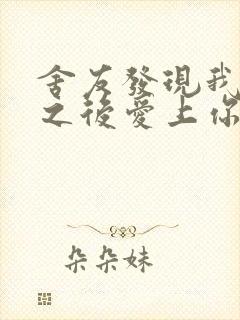 舍友發現我
之後愛上你
朵朵妹